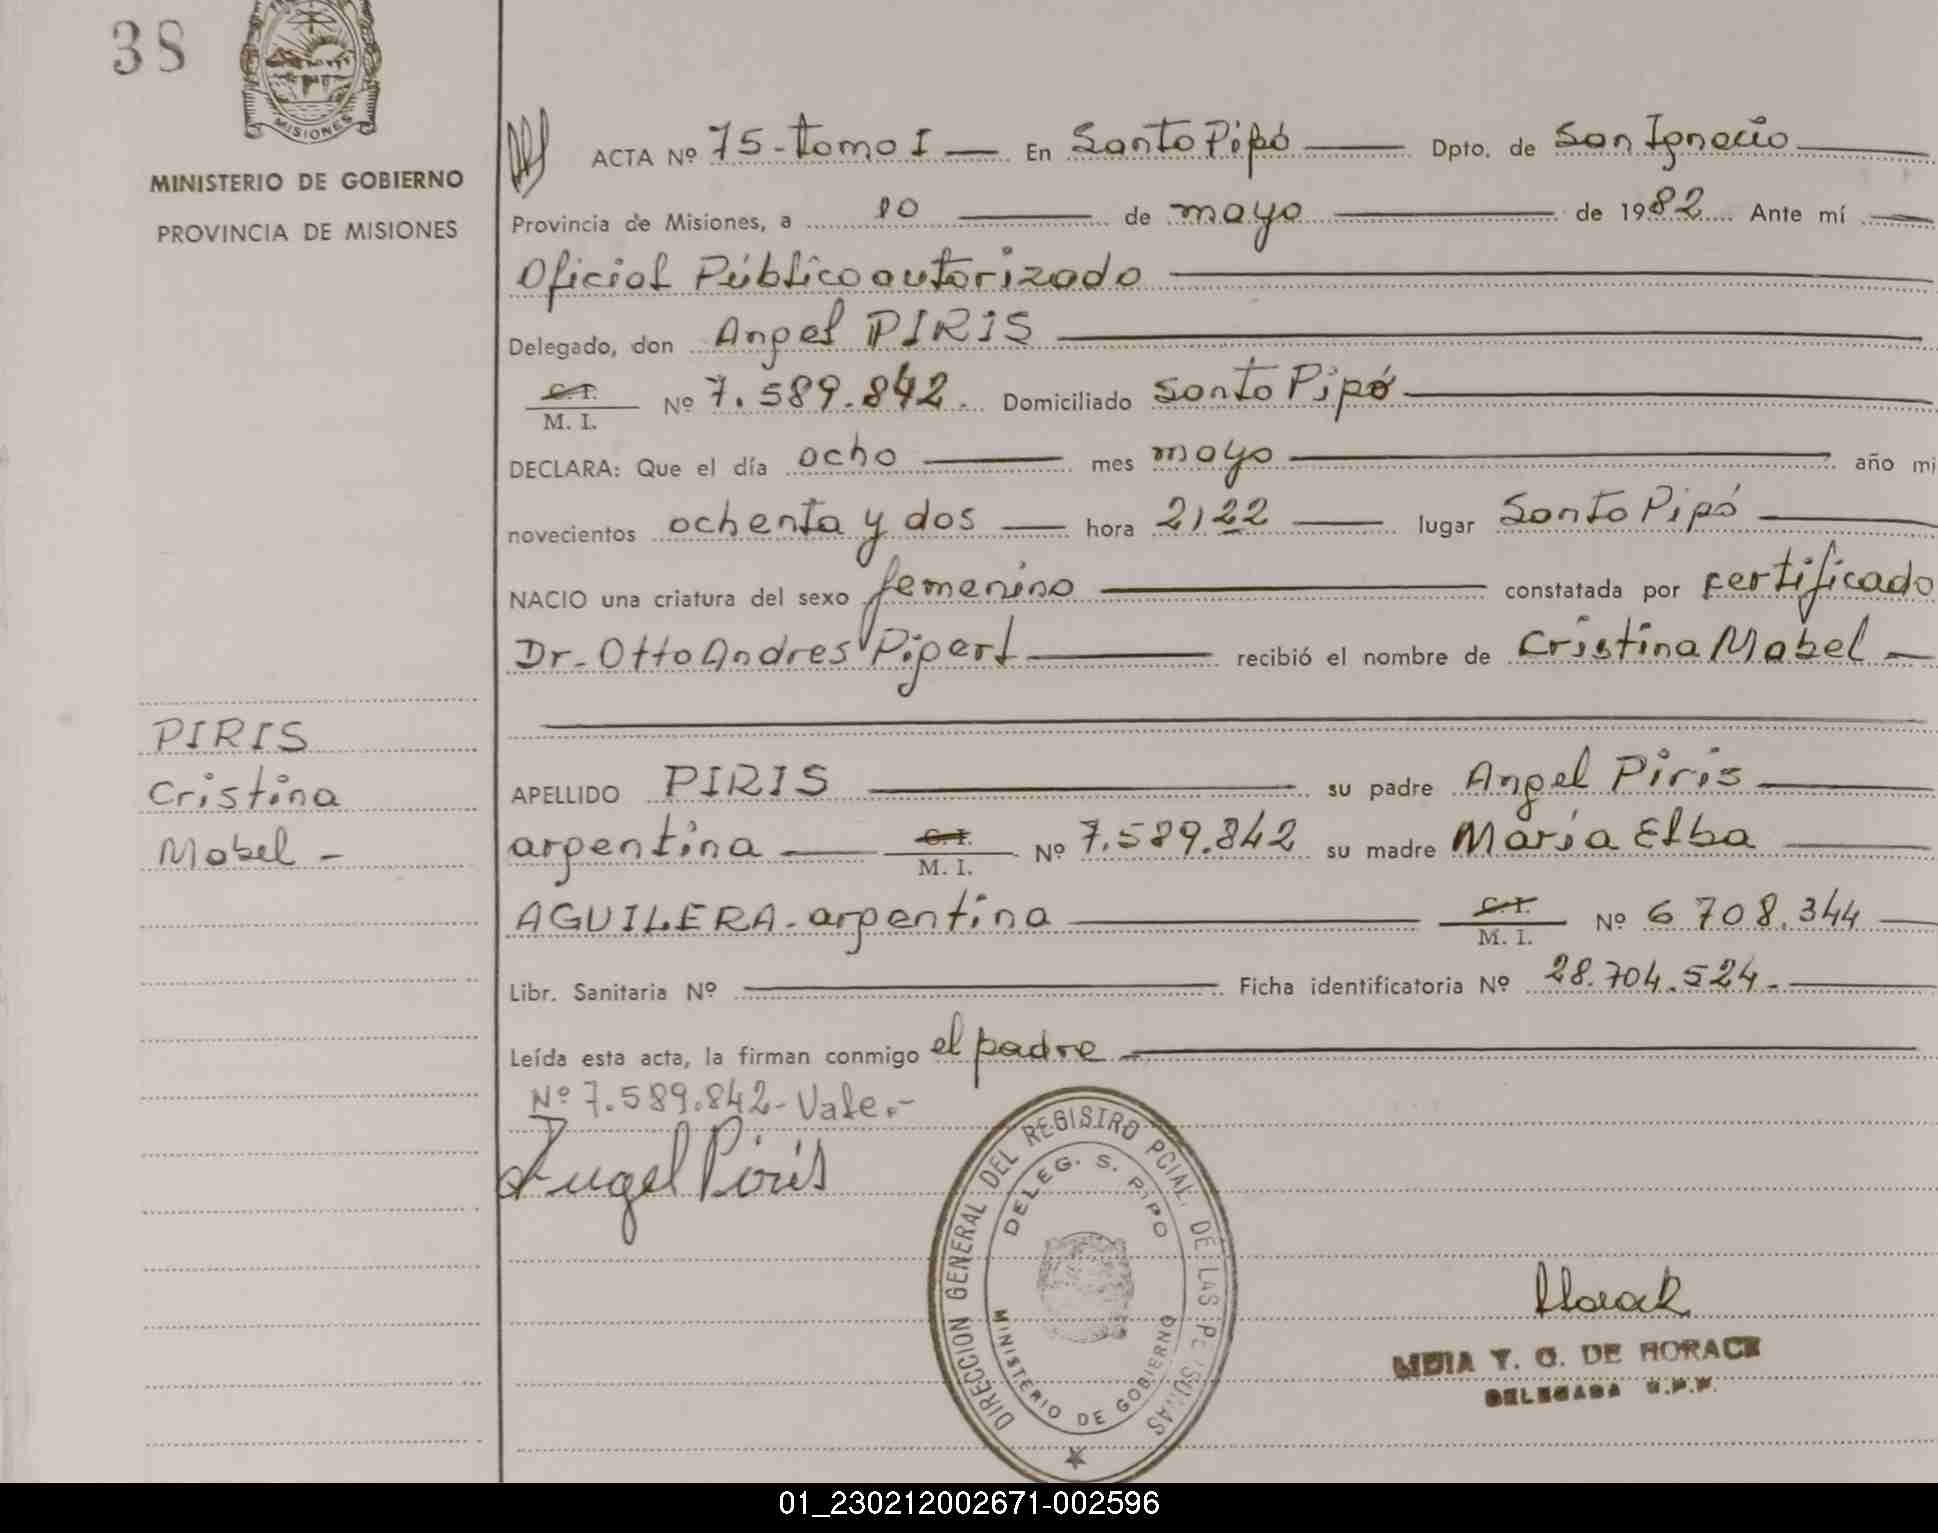 38
MISIONES
MINISTERIO DE GOBIERNO
PROVINCIA DE MISIONES
PIRIS
Cristina
Mabel -
ACTA Nº 75 - tomo I — En Santo Pipó — Dpto. de San Ignacio —
Provincia de Misiones, a 10 — de mayo — de 1982 Ante mí —
Oficial Público autorizado —
Delegado, don Angel PIRIS —
C. I.
M. I. Nº 7.589.842. Domiciliado Santo Pipó —
DECLARA: Que el día ocho — mes mayo — año mi
novecientos ochenta y dos — hora 2,22 — lugar Santo Pipó —
NACIO una criatura del sexo femenino — constatada por certificado
Dr. Otto Andres Pipert — recibió el nombre de Cristina Mabel —
APELLIDO PIRIS — su padre Angel Piris —
argentina — C. I.
M. I. Nº 7.589.842 su madre María Elba —
AGUILERA - argentina — C. I.
M. I. Nº 6 708.344 —
Libr. Sanitaria Nº — Ficha identificatoria Nº 28.704.524. —
Leída esta acta, la firman conmigo el padre —
Nº 7.589.842 - Vale.-
Angel Piris
DIRECCION GENERAL DEL REGISTRO PCIAL. DE LAS PERSONAS
DELEG. S. PIPO
MINISTERIO DE GOBIERNO
Horack
LIDIA Y. G. DE HORACK
DELEGADA
01_230212002671-002596